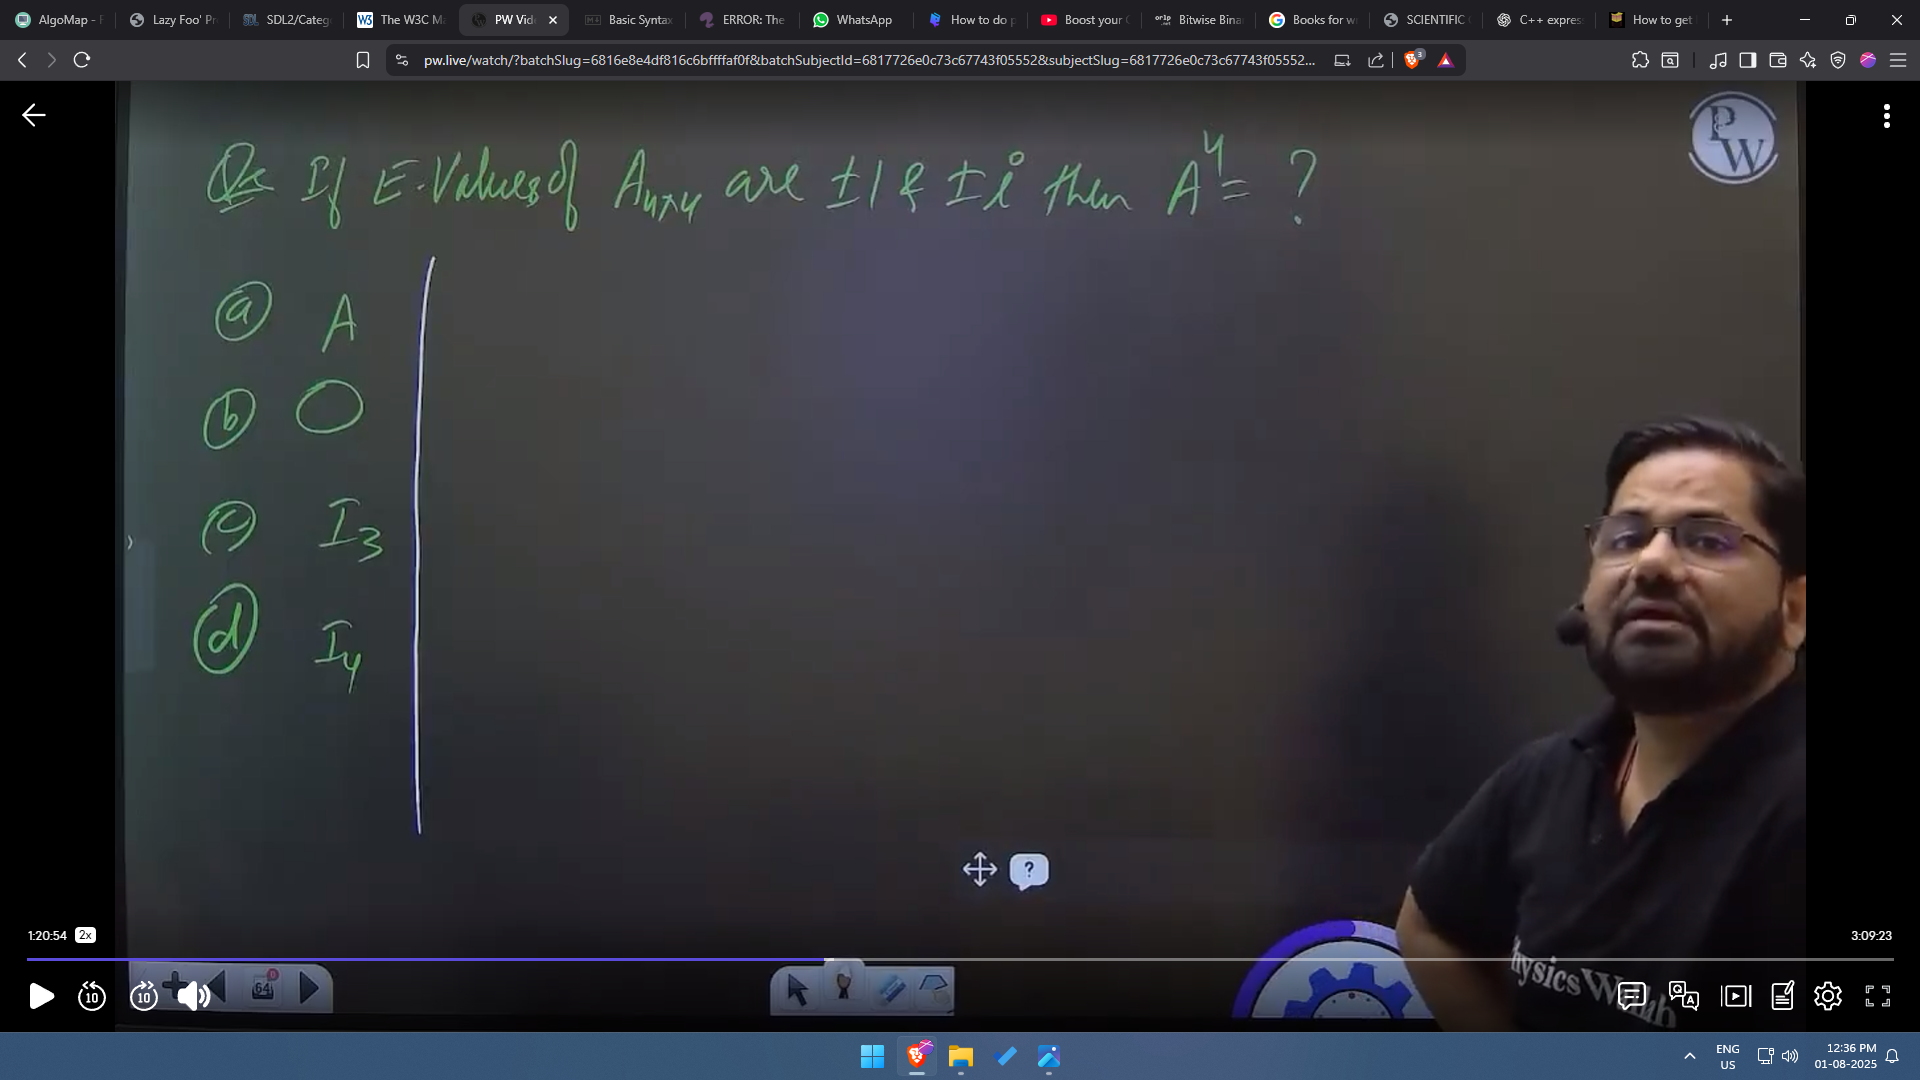 AlgoMap - F
Lazy Foo' Pr
SDL2/Categ
The W3C Ma
PW Vid
Basic Syntax
ERROR: The
WhatsApp
How to do p
Boost your C
Bitwise Bina
Books for w
SCIENTIFIC
C++ expres
How to get
pw.live/watch/?batchSlug=6816e8e4df816c6bffffaf0f&batchSubjectId=6817726e0c73c67743f05552&subjectSlug=6817726e0c73c67743f05552...
3
PW
Qs If E-Values of A4x4 are ±1 & ±i then A^4 = ?
(a) A
(b) O
(c) I3
(d) I4
?
1:20:54 2x
3:09:23
10
10
64
hysics Wallah
ENG
US
12:36 PM
01-08-2025